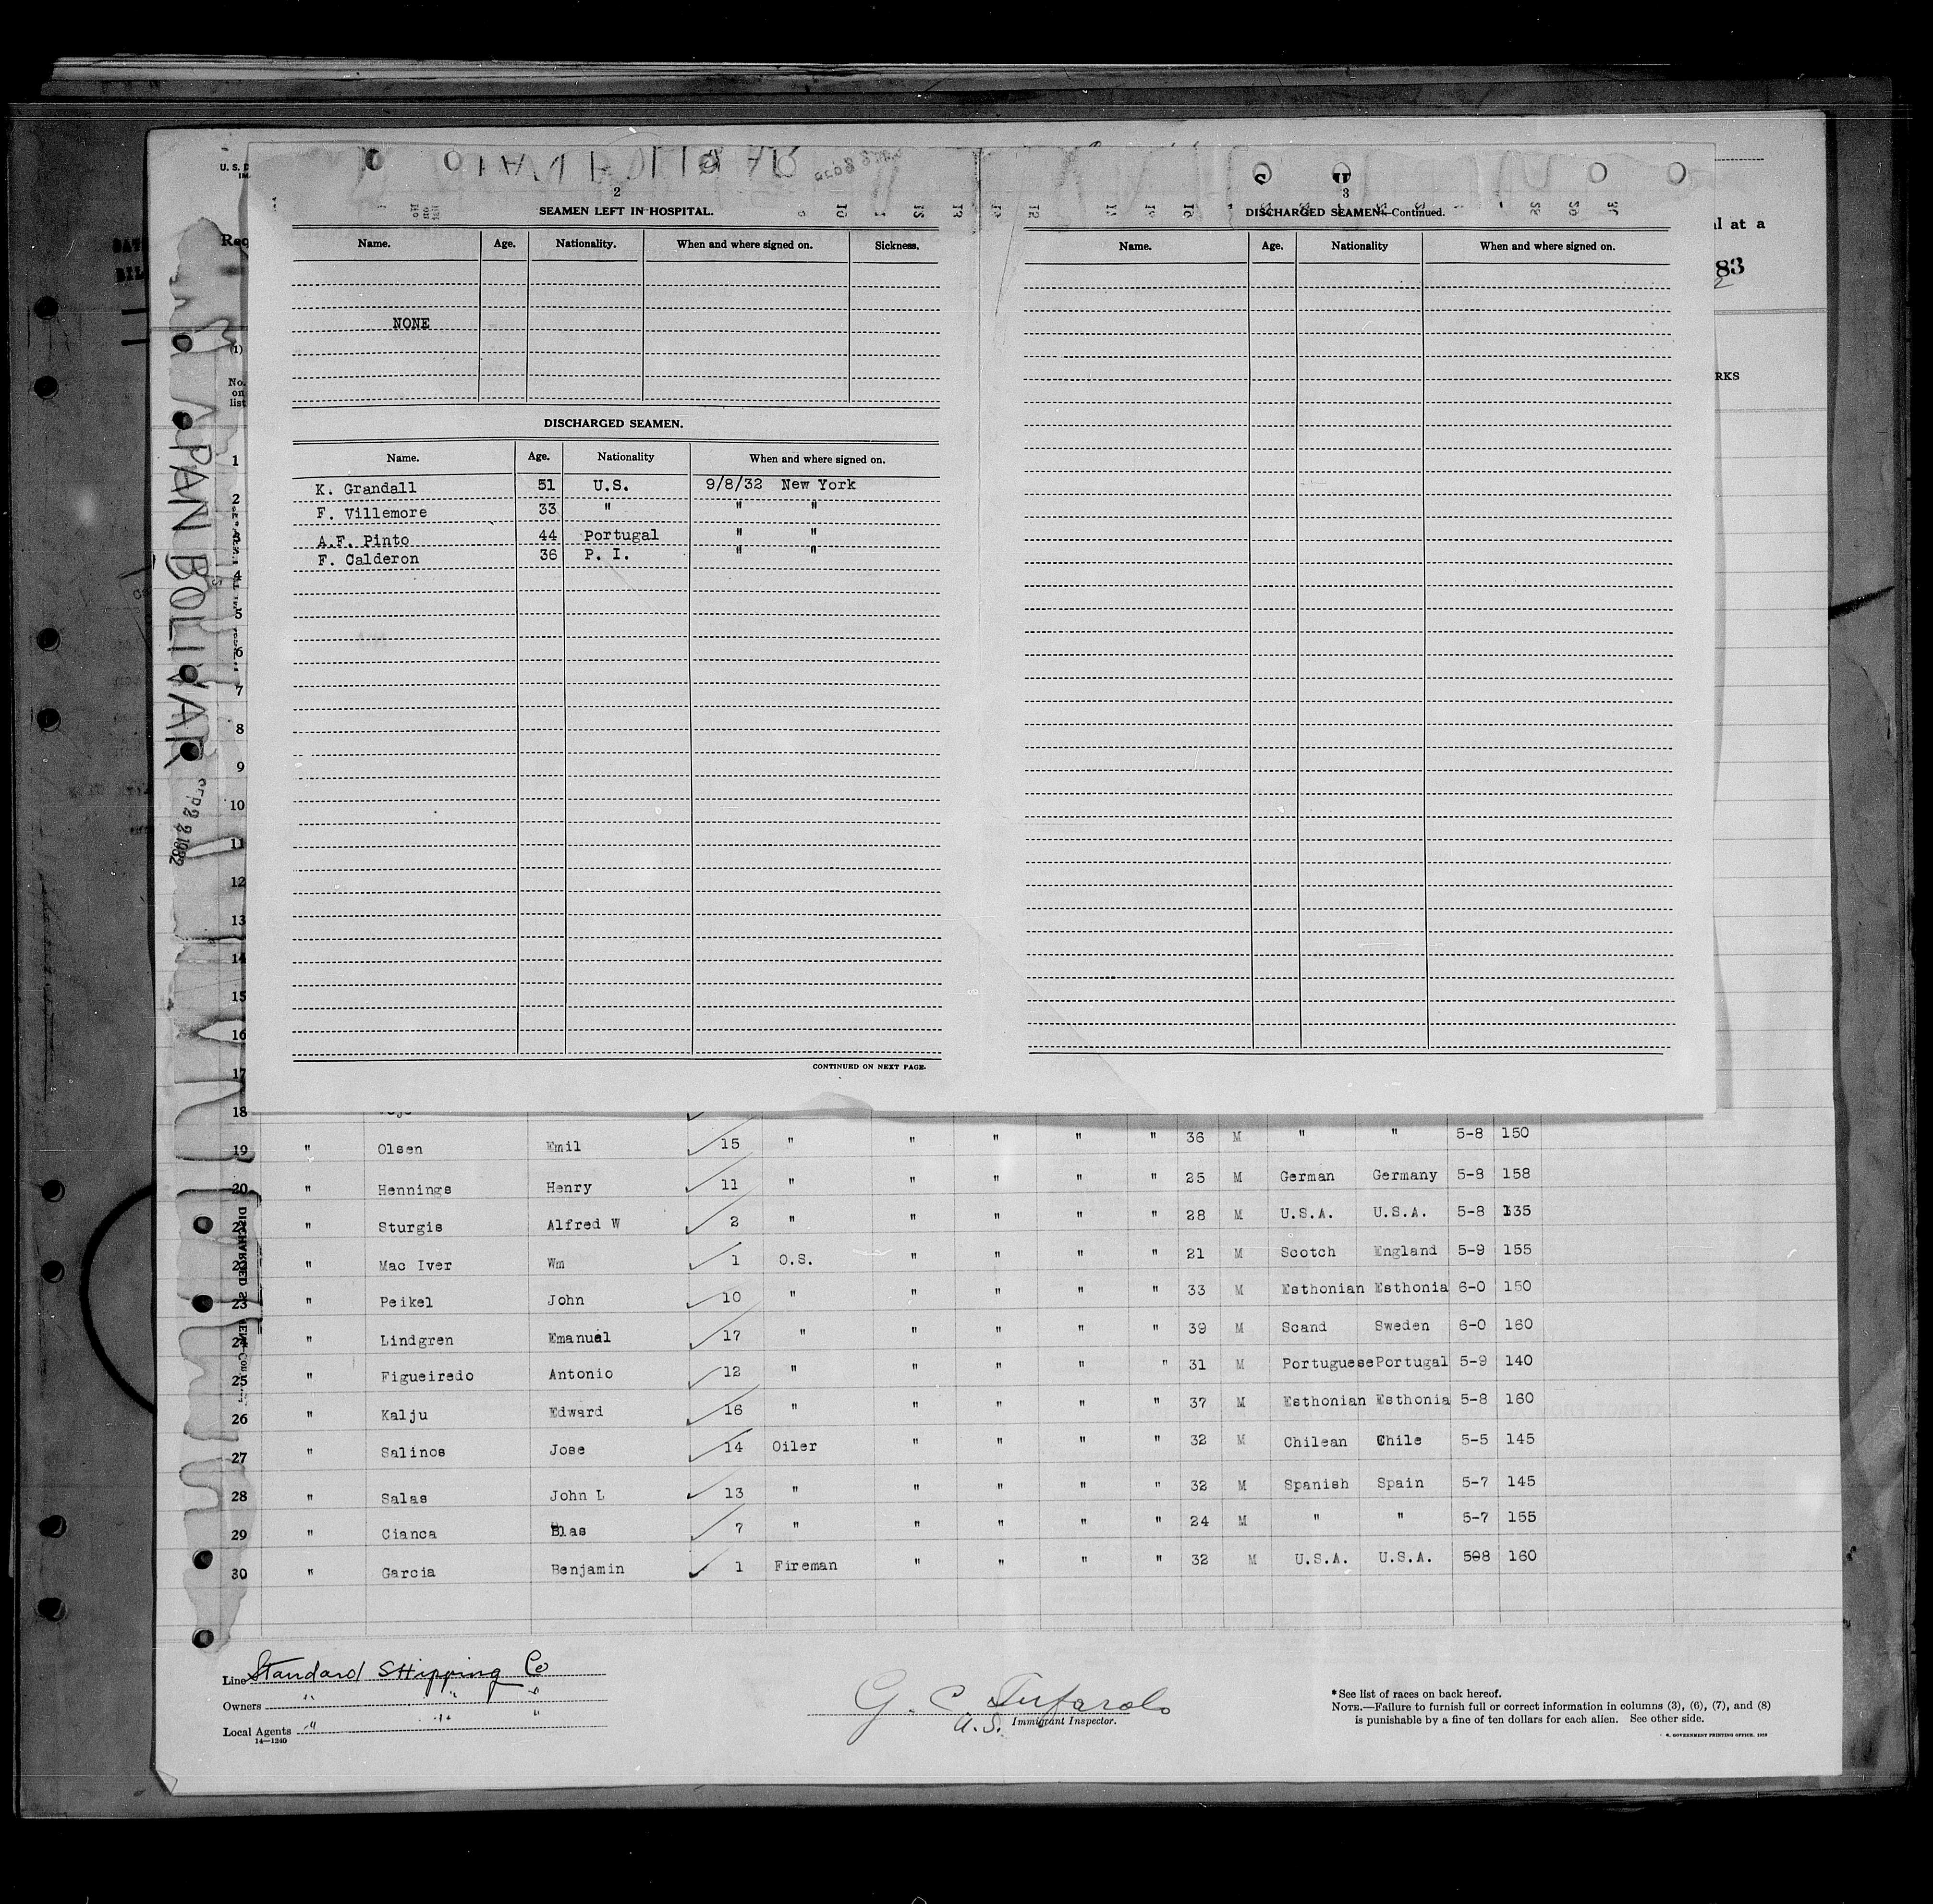 2
SEAMEN LEFT IN HOSPITAL.
Name. Age. Nationality. When and where signed on. Sickness.
NONE
DISCHARGED SEAMEN.
Name. Age. Nationality When and where signed on.
K. Grandall 51 U.S. 9/8/32 New York
F. Villemore 33 " " "
A.F. Pinto 44 Portugal " "
F. Calderon 36 P. I. " "
CONTINUED ON NEXT PAGE.
3
DISCHARGED SEAMEN—Continued.
Name. Age. Nationality When and where signed on.
l at a
83
RKS
U. S. D
Req
(1)
No. on list
PAN BOLIVAR
1
2
4
5
6
7
8
9
10
11
12
13
14
15
16
17
18
19 " Olsen Emil 15 " " " " " 36 M " " 5-8 150
20 " Hennings Henry 11 " " " " " 25 M German Germany 5-8 158
21 " Sturgis Alfred W 2 " " " " " 28 M U.S.A. U.S.A. 5-8 135
22 " Mac Iver Wm 1 O.S. " " " " 21 M Scotch England 5-9 155
23 " Peikel John 10 " " " " " 33 M Esthonian Esthonia 6-0 150
24 " Lindgren Emanual 17 " " " " " 39 M Scand Sweden 6-0 160
25 " Figueiredo Antonio 12 " " " " " 31 M Portuguese Portugal 5-9 140
26 " Kalju Edward 16 " " " " " 37 M Esthonian Esthonia 5-8 160
27 " Salinos Jose 14 Oiler " " " " 32 M Chilean Chile 5-5 145
28 " Salas John L 13 " " " " " 32 M Spanish Spain 5-7 145
29 " Cianca Blas 7 " " " " " 24 M " " 5-7 155
30 " Garcia Benjamin 1 Fireman " " " " 32 M U.S.A. U.S.A. 508 160
Line Standard Shipping Co
Owners " " "
Local Agents " " "
14—1240
U.S. Immigrant Inspector.
*See list of races on back hereof.
NOTE.—Failure to furnish full or correct information in columns (3), (6), (7), and (8)
is punishable by a fine of ten dollars for each alien. See other side.